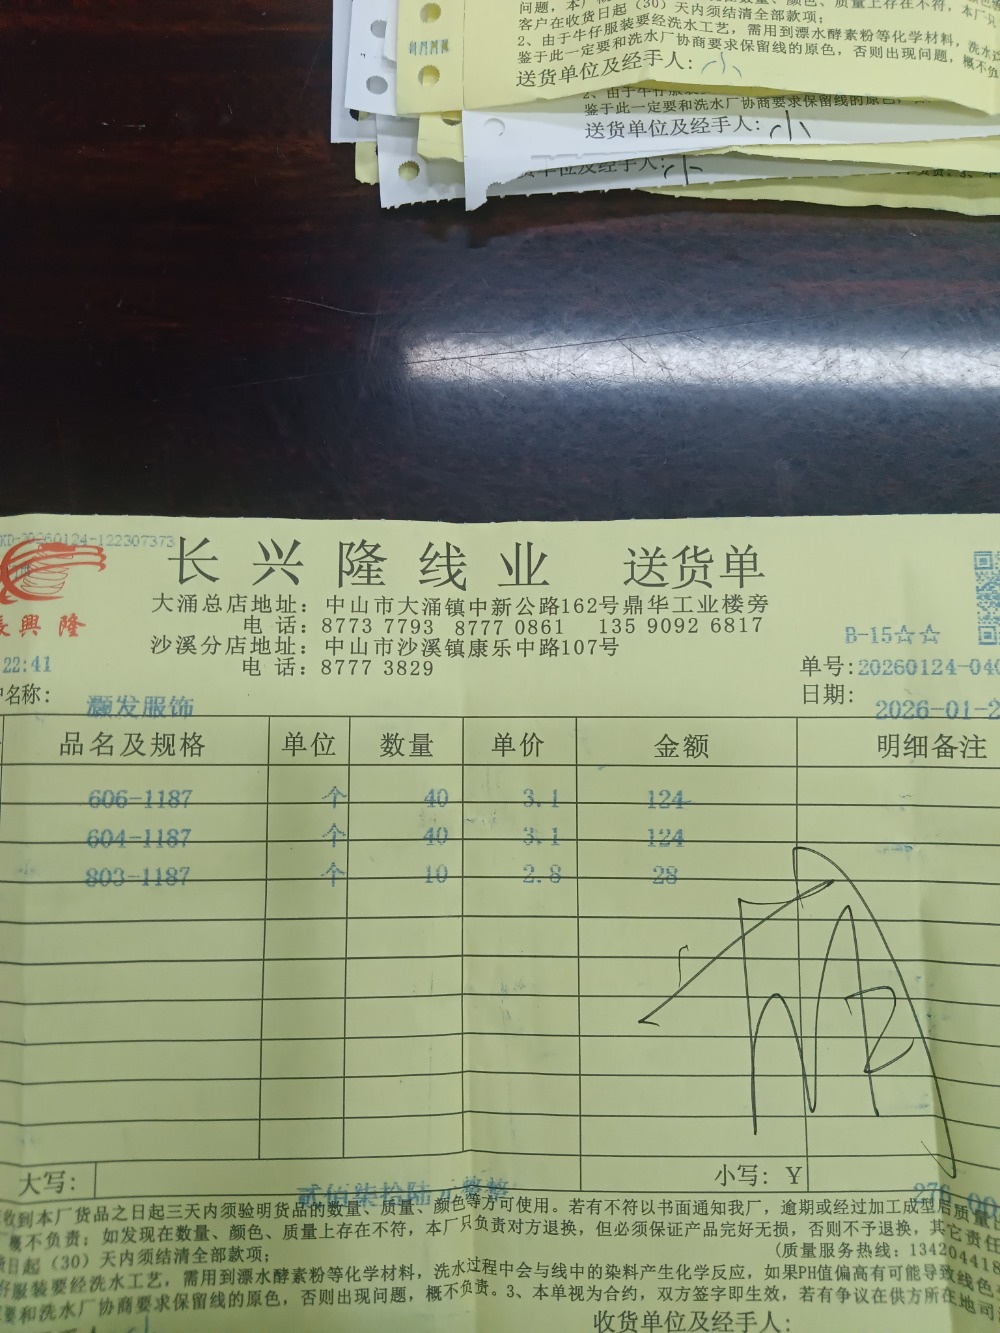 问题，本厂概
数量、颜色、质量上存在不符，本厂只
客户在收货日起（30）天内须结清全部款项；
2、由于牛仔服装要经洗水工艺，需用到漂水酵素粉等化学材料，洗水过
鉴于此一定要和洗水厂协商要求保留线的原色，否则出现问题，概不负
送货单位及经手人：
2、由于牛仔服装
鉴于此一定要和洗水厂协商要求保留线的原色，
送货单位及经手人：小
货单位及经手人：小
KD-20260124-122307373
长兴隆线业 送货单
長興隆
大涌总店地址：中山市大涌镇中新公路162号鼎华工业楼旁
电 话：8773 7793 8777 0861 135 9092 6817
沙溪分店地址：中山市沙溪镇康乐中路107号
电 话：8777 3829
B-15☆☆
22:41
单号：20260124-040
户名称：灏发服饰
日期：2026-01-2
品名及规格 单位 数量 单价 金额 明细备注
606-1187 个 40 3.1 124
604-1187 个 40 3.1 124
803-1187 个 10 2.8 28
大写：贰佰柒拾陆元整 小写：Y 276.00
收到本厂货品之日起三天内须验明货品的数量、质量、颜色等方可使用。若有不符以书面通知我厂，逾期或经过加工成型后质量
概不负责；如发现在数量、颜色、质量上存在不符，本厂只负责对方退换，但必须保证产品完好无损，否则不予退换，其它责任
日起（30）天内须结清全部款项；
（质量服务热线：134204418
服装要经洗水工艺，需用到漂水酵素粉等化学材料，洗水过程中会与线中的染料产生化学反应，如果PH值偏高有可能导致线色
要和洗水厂协商要求保留线的原色，否则出现问题，概不负责。3、本单视为合约，双方签字即生效，若有争议在供方所在地司
收货单位及经手人：